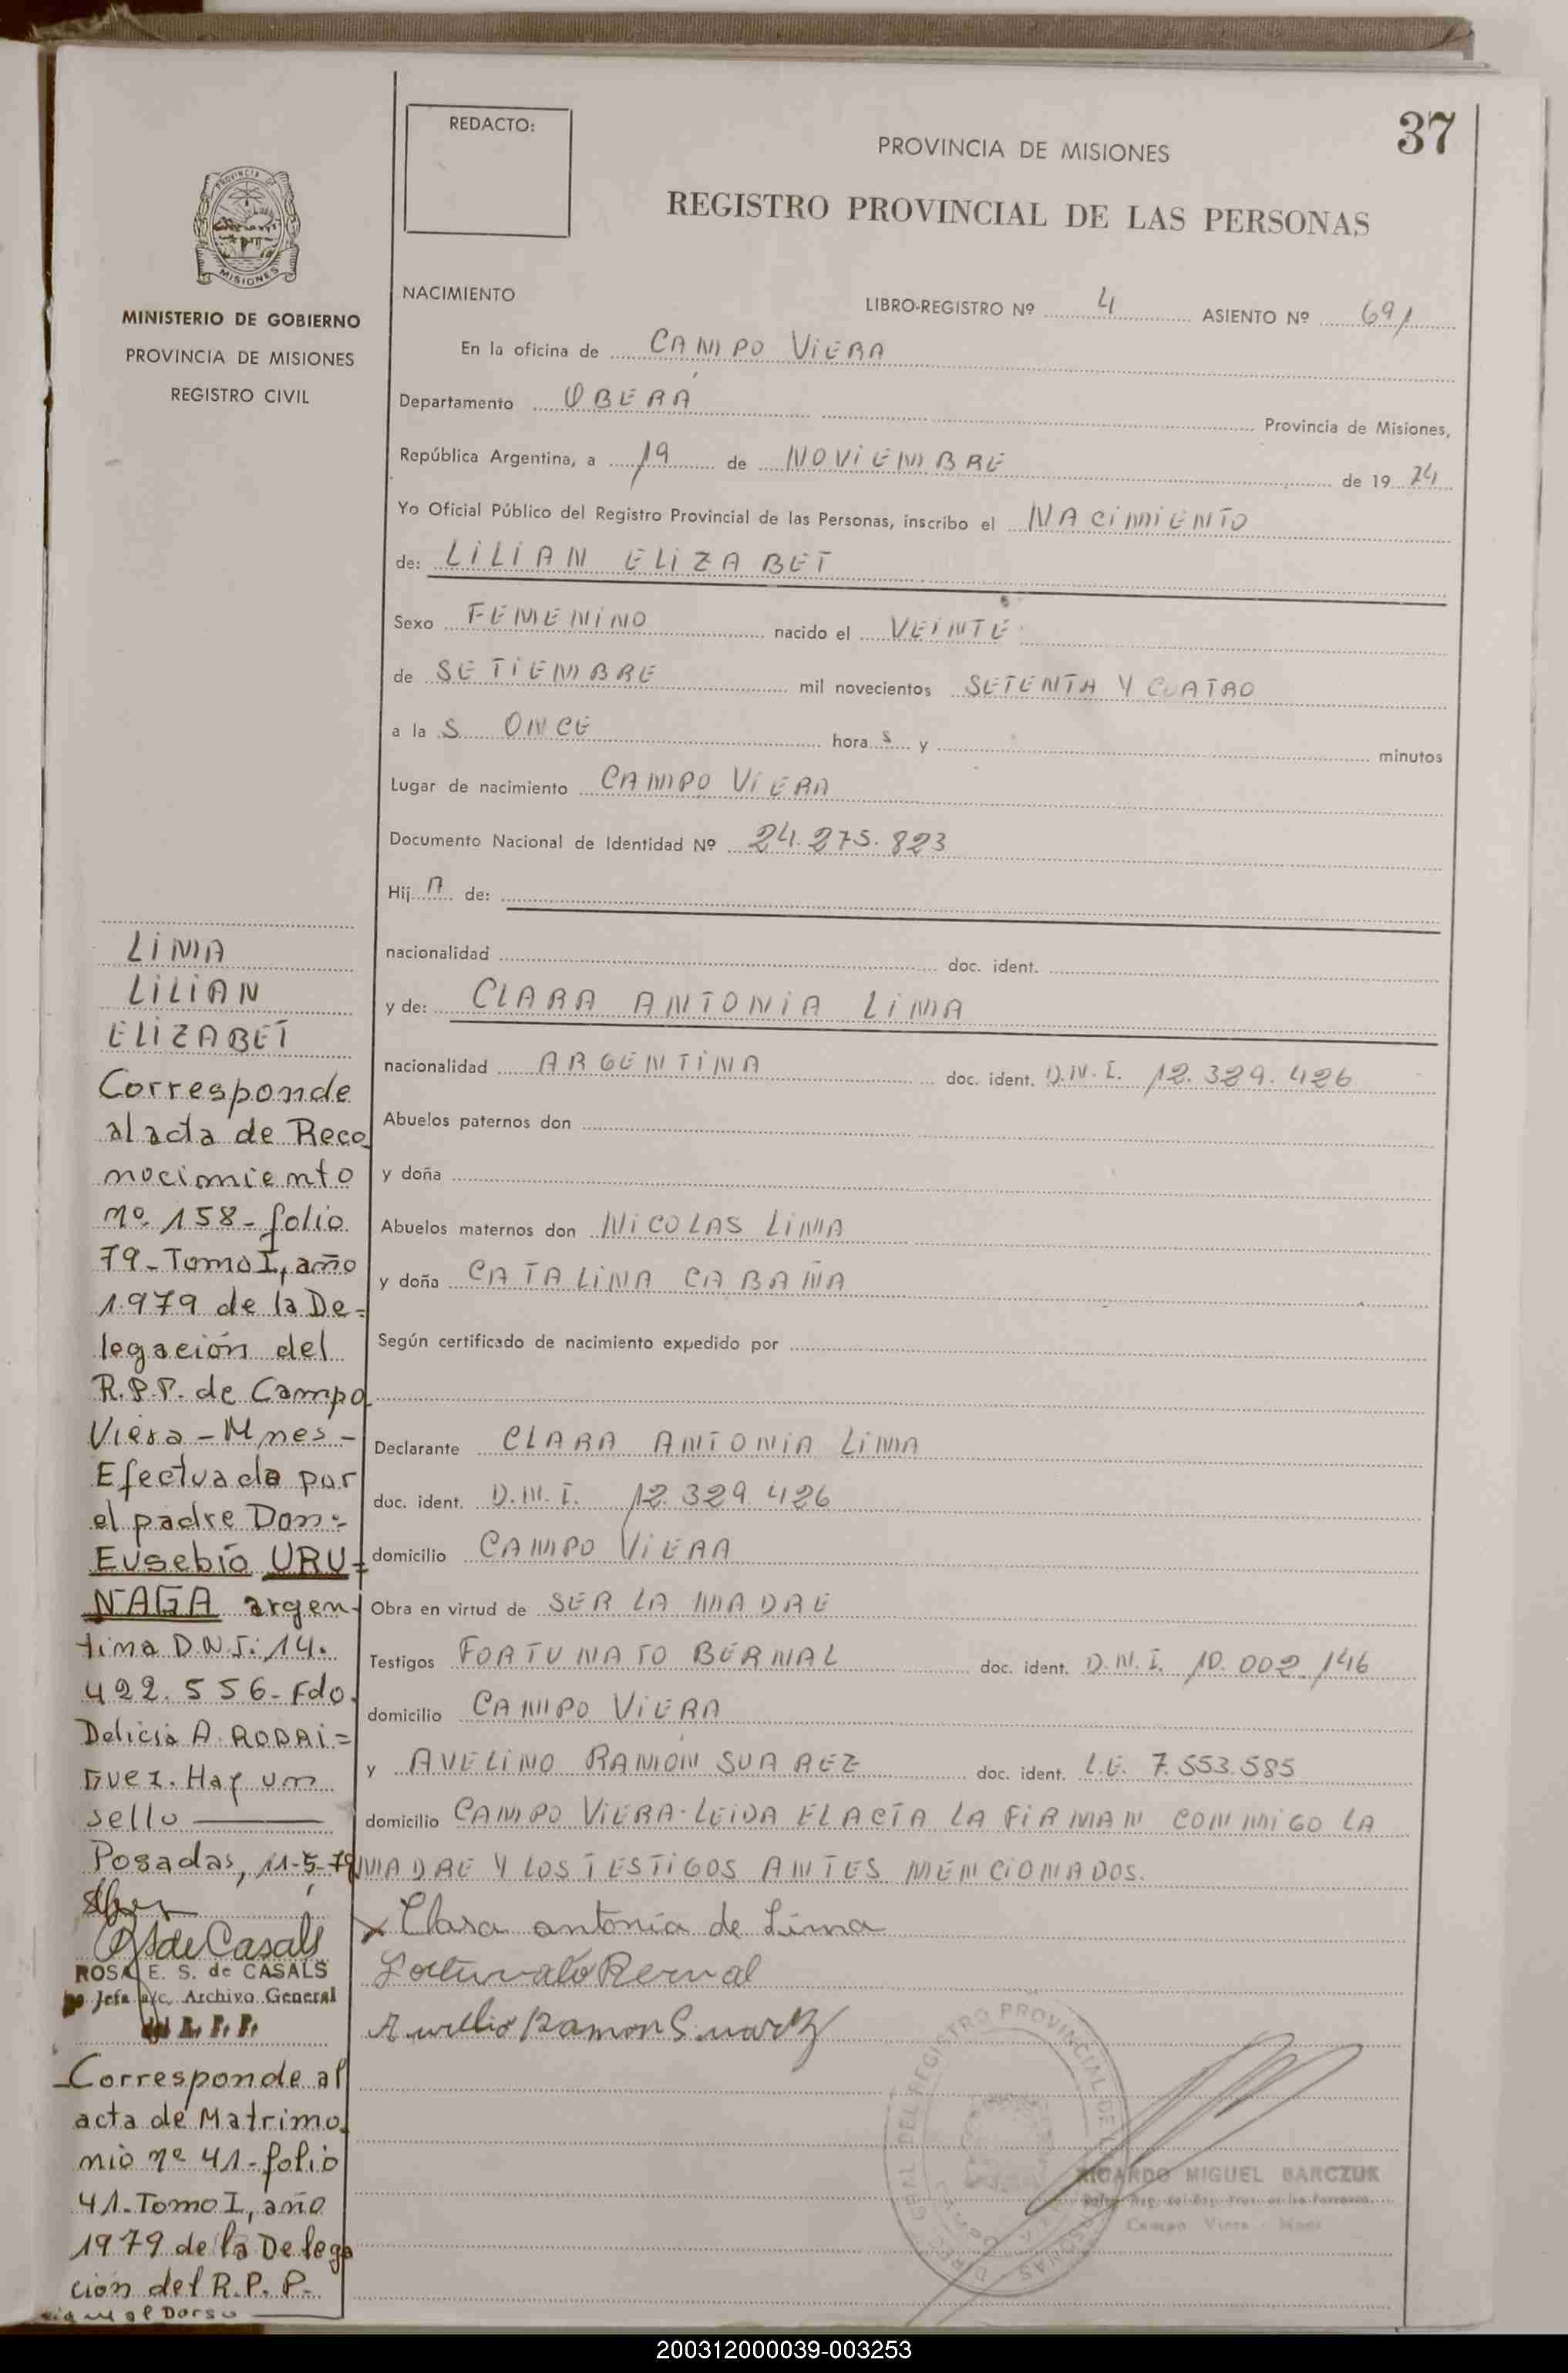 37
REDACTO:
PROVINCIA DE MISIONES
REGISTRO PROVINCIAL DE LAS PERSONAS
PROVINCIA DE
MISIONES
MINISTERIO DE GOBIERNO
PROVINCIA DE MISIONES
REGISTRO CIVIL
NACIMIENTO
LIBRO-REGISTRO Nº 4 ASIENTO Nº 691
En la oficina de CAMPO VIERA
Departamento OBERÁ Provincia de Misiones,
República Argentina, a 19 de NOVIEMBRE de 19 74
Yo Oficial Público del Registro Provincial de las Personas, inscribo el NACIMIENTO
de: LILIAN ELIZABET
Sexo FEMENINO nacido el VEINTE
de SETIEMBRE mil novecientos SETENTA Y CUATRO
a la S ONCE hora s y minutos
Lugar de nacimiento CAMPO VIERA
Documento Nacional de Identidad Nº 24.275.823
Hij A de:
nacionalidad doc. ident.
y de: CLARA ANTONIA LIMA
nacionalidad ARGENTINA doc. ident. D.N.I. 12.329.426
Abuelos paternos don
y doña
Abuelos maternos don NICOLAS LIMA
y doña CATALINA CABAÑA
Según certificado de nacimiento expedido por
Declarante CLARA ANTONIA LIMA
doc. ident. D.N.I. 12.329.426
domicilio CAMPO VIERA
Obra en virtud de SER LA MADRE
Testigos FORTUNATO BERNAL doc. ident. D.N.I. 10.002.146
domicilio CAMPO VIERA
y AVELINO RAMÓN SUAREZ doc. ident. L.E. 7.553.585
domicilio CAMPO VIERA-LEIDA EL ACTA LA FIRMAN CONMIGO LA
MADRE Y LOS TESTIGOS ANTES MENCIONADOS.
x Clara antonia de Lima
Fortunato Bernal
Ramon Suarez
RICARDO MIGUEL BARCZUK
Campo Viera
LIMA
LILIAN
ELIZABET
Corresponde
al acta de Reco
nocimiento
nº 158-folio
79-Tomo I, año
1979 de la De=
legación del
R.P.P. de Campo
Viera-Mnes-
Efectuada por
el padre Don=
Eusebio URU=
NAGA argen-
tino D.N.I: 14.
422.556-Fdo.
Delicia A. RODRI=
GUEZ. Hay un
sello
Posadas, 11-5-79
RSdeCasals
ROSA E. S. de CASALS
Jefa a/c. Archivo General
del R. P. P.
Corresponde al
acta de Matrimo
nio nº 41-folio
41-Tomo I, año
1979 de la Delega
ción del R.P.P.
sigue al Dorso
200312000039-003253